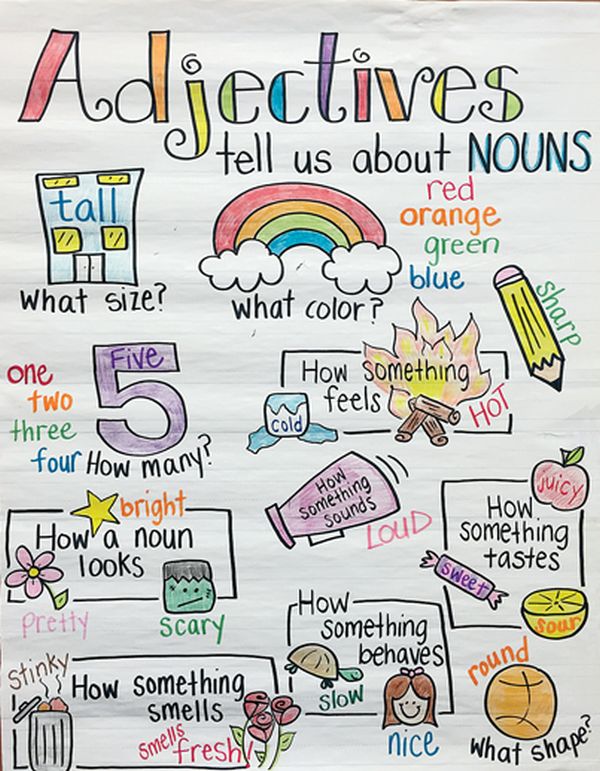 Adjectives
tell us about NOUNS
tall
What size?
What color?
red
orange
green
blue
sharp
one
two
three
four
Five
How many?
How something
feels
cold
HOT
How
something
sounds
LOUD
How
something
tastes
juicy
sweet
sour
bright
How a noun
looks
pretty
scary
How
something
behaves
slow
nice
Stinky
How something
smells
smells
fresh!
round
What shape?